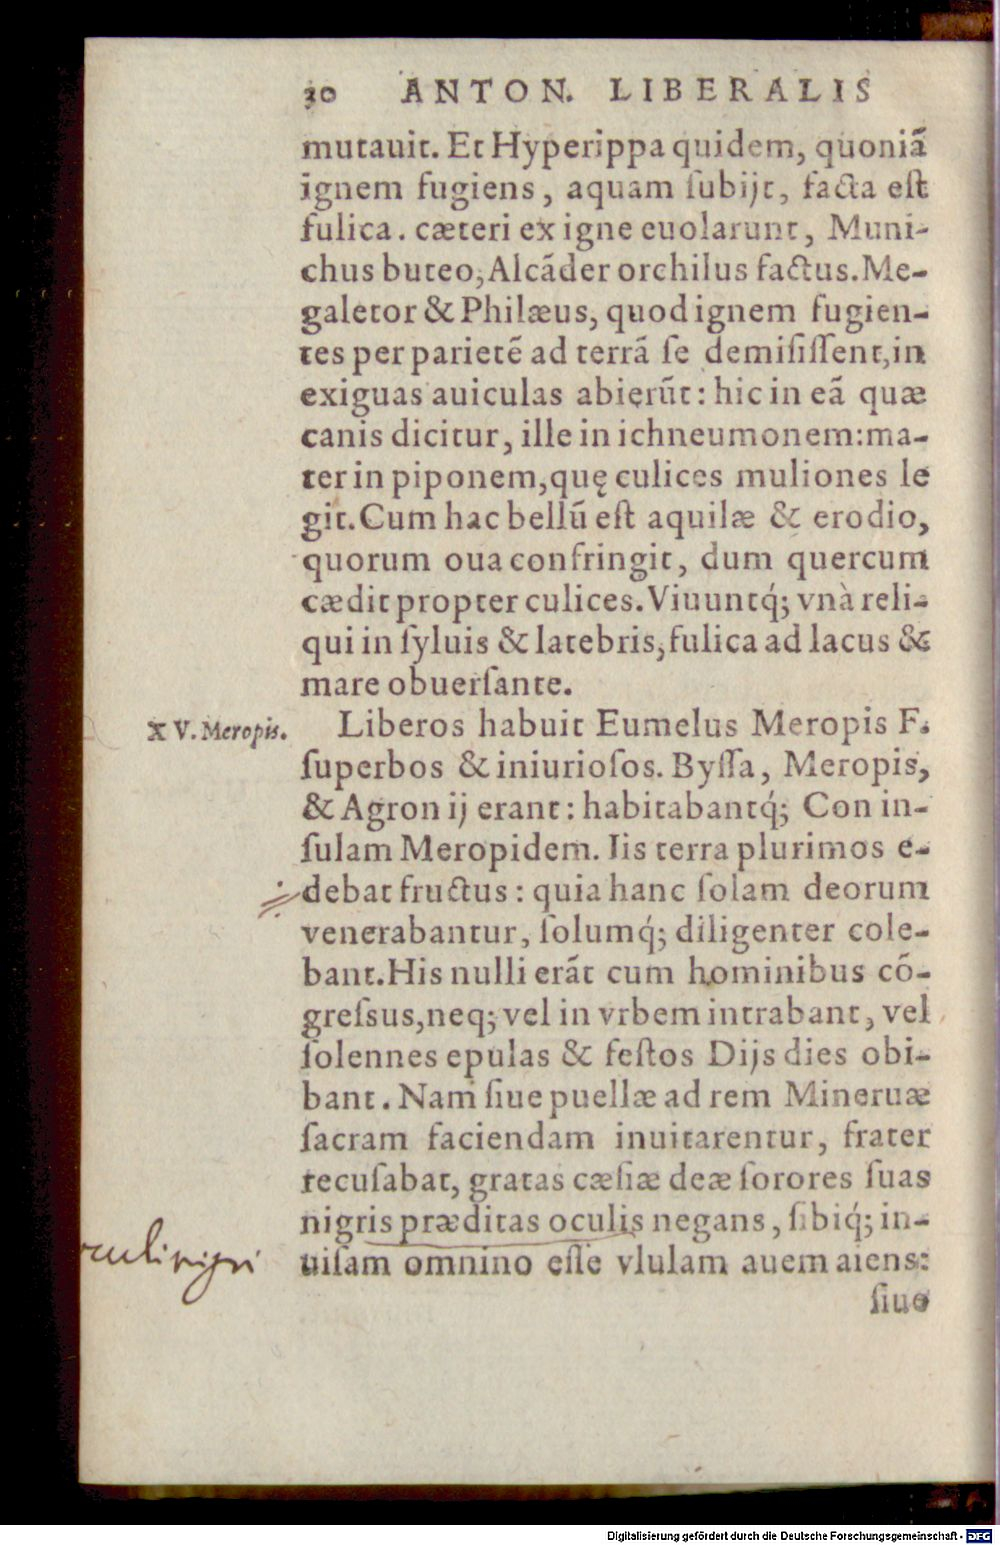 30 ANTON. LIBERALIS
mutauit. Et Hyperippa quidem, quoniã
ignem fugiens, aquam ſubijt, facta eſt
fulica. cæteri ex igne euolarunt, Muni-
chus buteo, Alcãder orchilus factus. Me-
galetor & Philæus, quod ignem fugien-
tes per parietẽ ad terrã ſe demiſiſſent, in
exiguas auiculas abierũt: hic in eã quæ
canis dicitur, ille in ichneumonem: ma-
ter in piponem, quę culices muliones le
git. Cum hac bellũ eſt aquilæ & erodio,
quorum oua confringit, dum quercum
cædit propter culices. Viuuntq́; vnà reli-
qui in ſyluis & latebris, fulica ad lacus &
mare obuerſante.
XV. Meropis. Liberos habuit Eumelus Meropis F.
ſuperbos & iniurioſos. Byſſa, Meropis,
& Agron ij erant: habitabantq́; Con in-
ſulam Meropidem. Iis terra plurimos e-
debat fructus: quia hanc ſolam deorum
venerabantur, ſolumq́; diligenter cole-
bant. His nulli erãt cum hominibus cõ-
greſsus, neq; vel in vrbem intrabant, vel
ſolennes epulas & feſtos Dijs dies obi-
bant. Nam ſiue puellæ ad rem Mineruæ
ſacram faciendam inuitarentur, frater
recuſabat, gratas cæſiæ deæ ſorores ſuas
nigris præditas oculis negans, ſibiq́; in-
uiſam omnino eſſe vlulam auem aiens:
culi nigri
ſiue
Digitalisierung gefördert durch die Deutsche Forschungsgemeinschaft - DFG